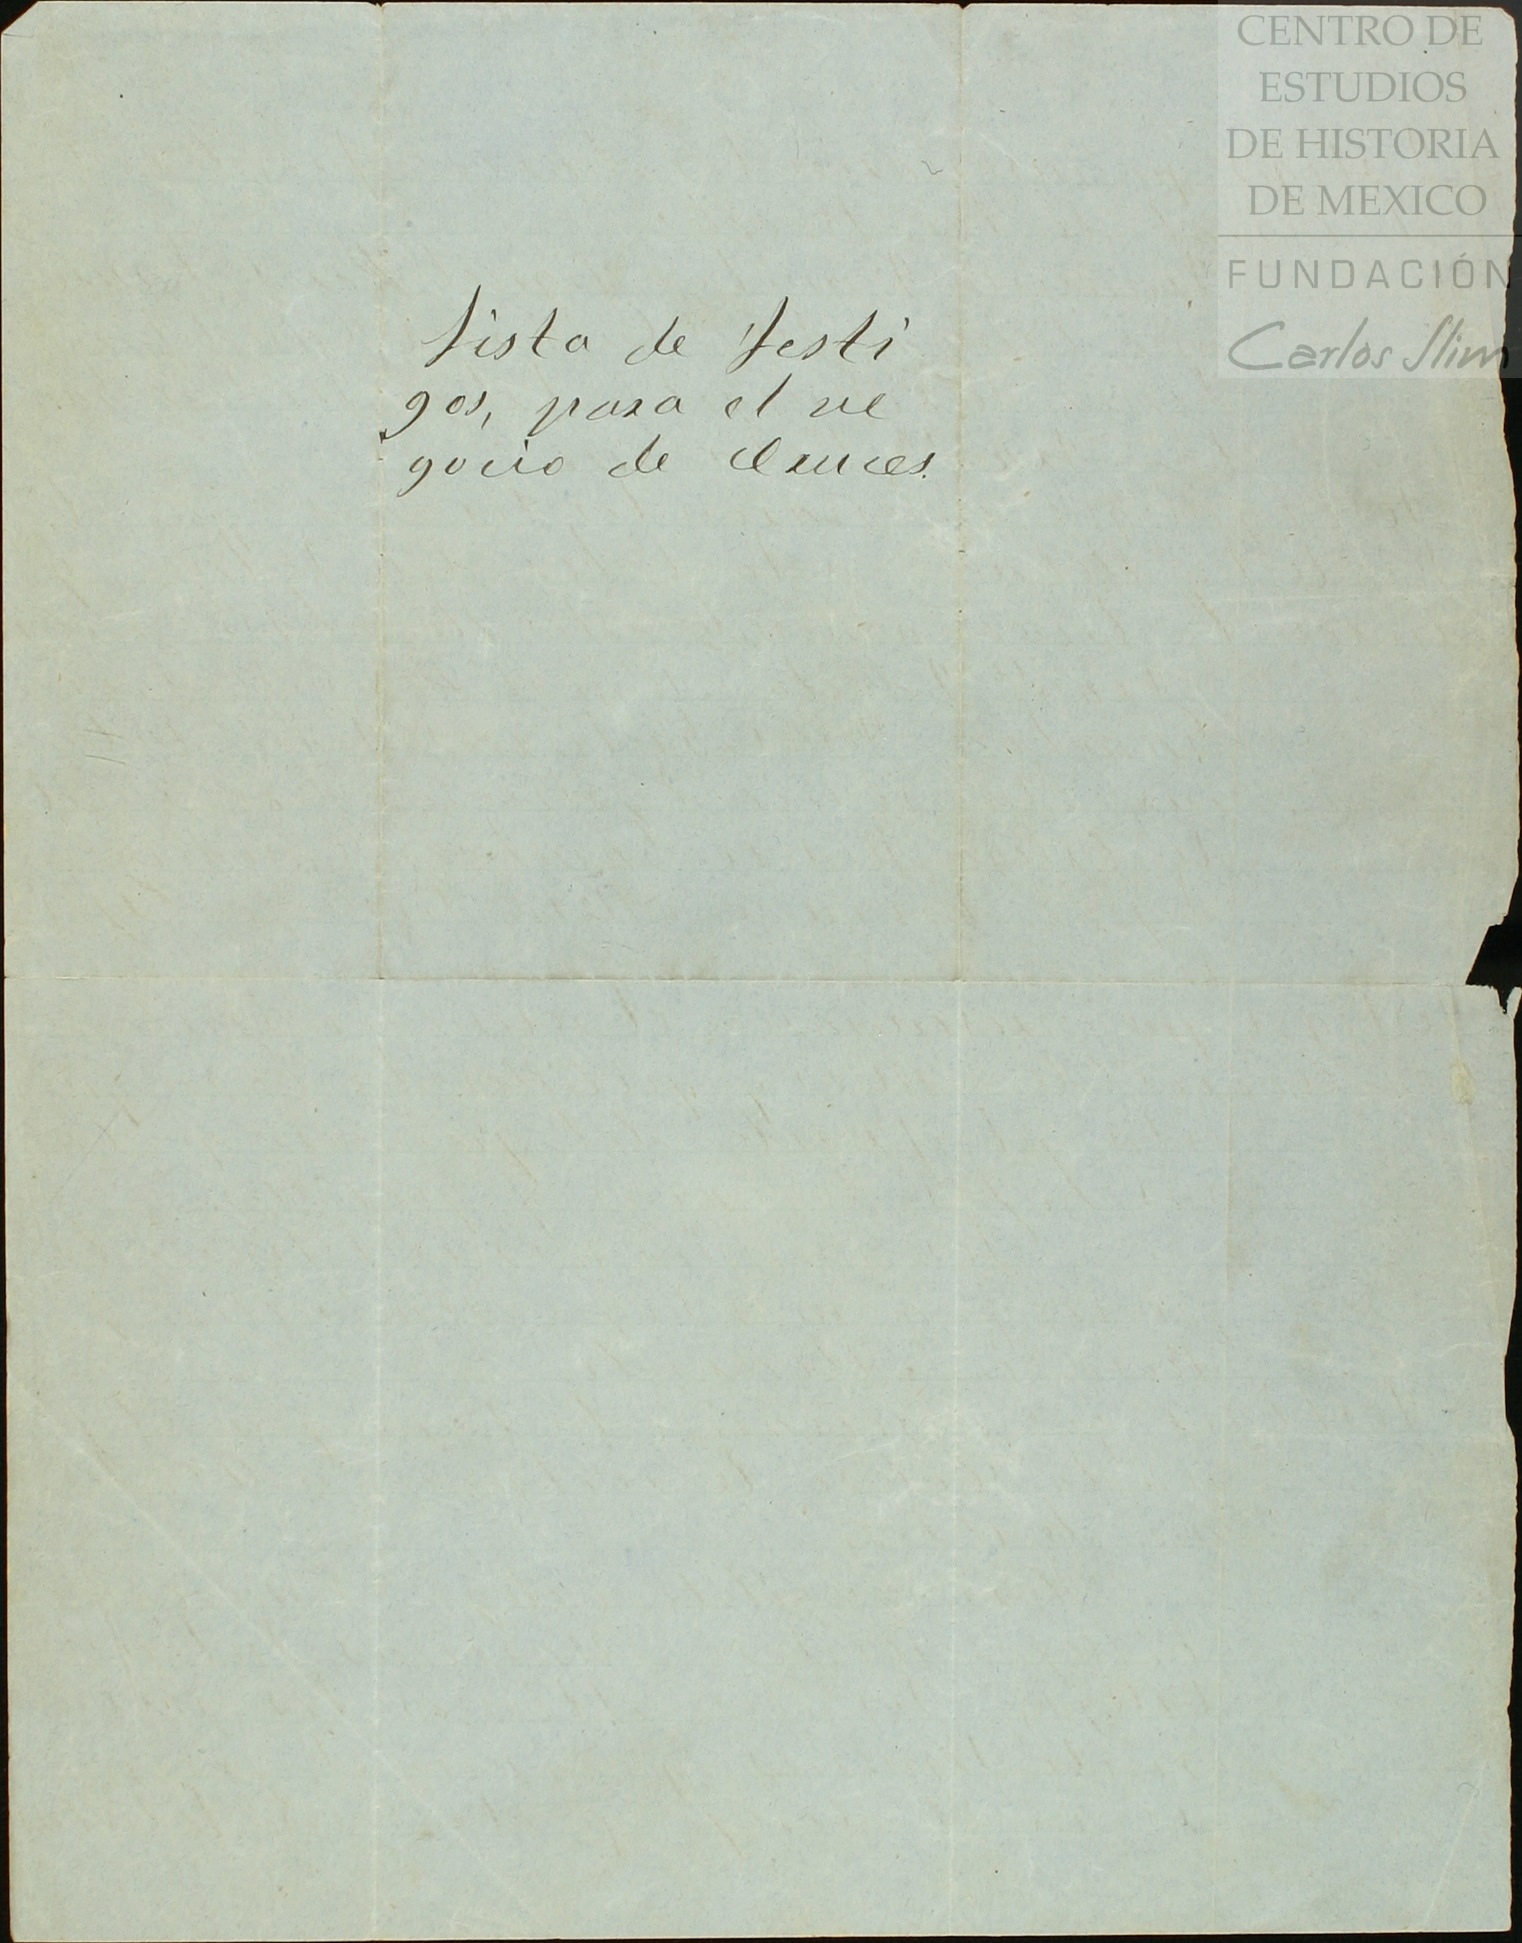 CENTRO DE
ESTUDIOS
DE HISTORIA
DE MEXICO
FUNDACIÓN
Carlos Slim
Lista de Testi
gos, para el ne
gocio de Cruces.